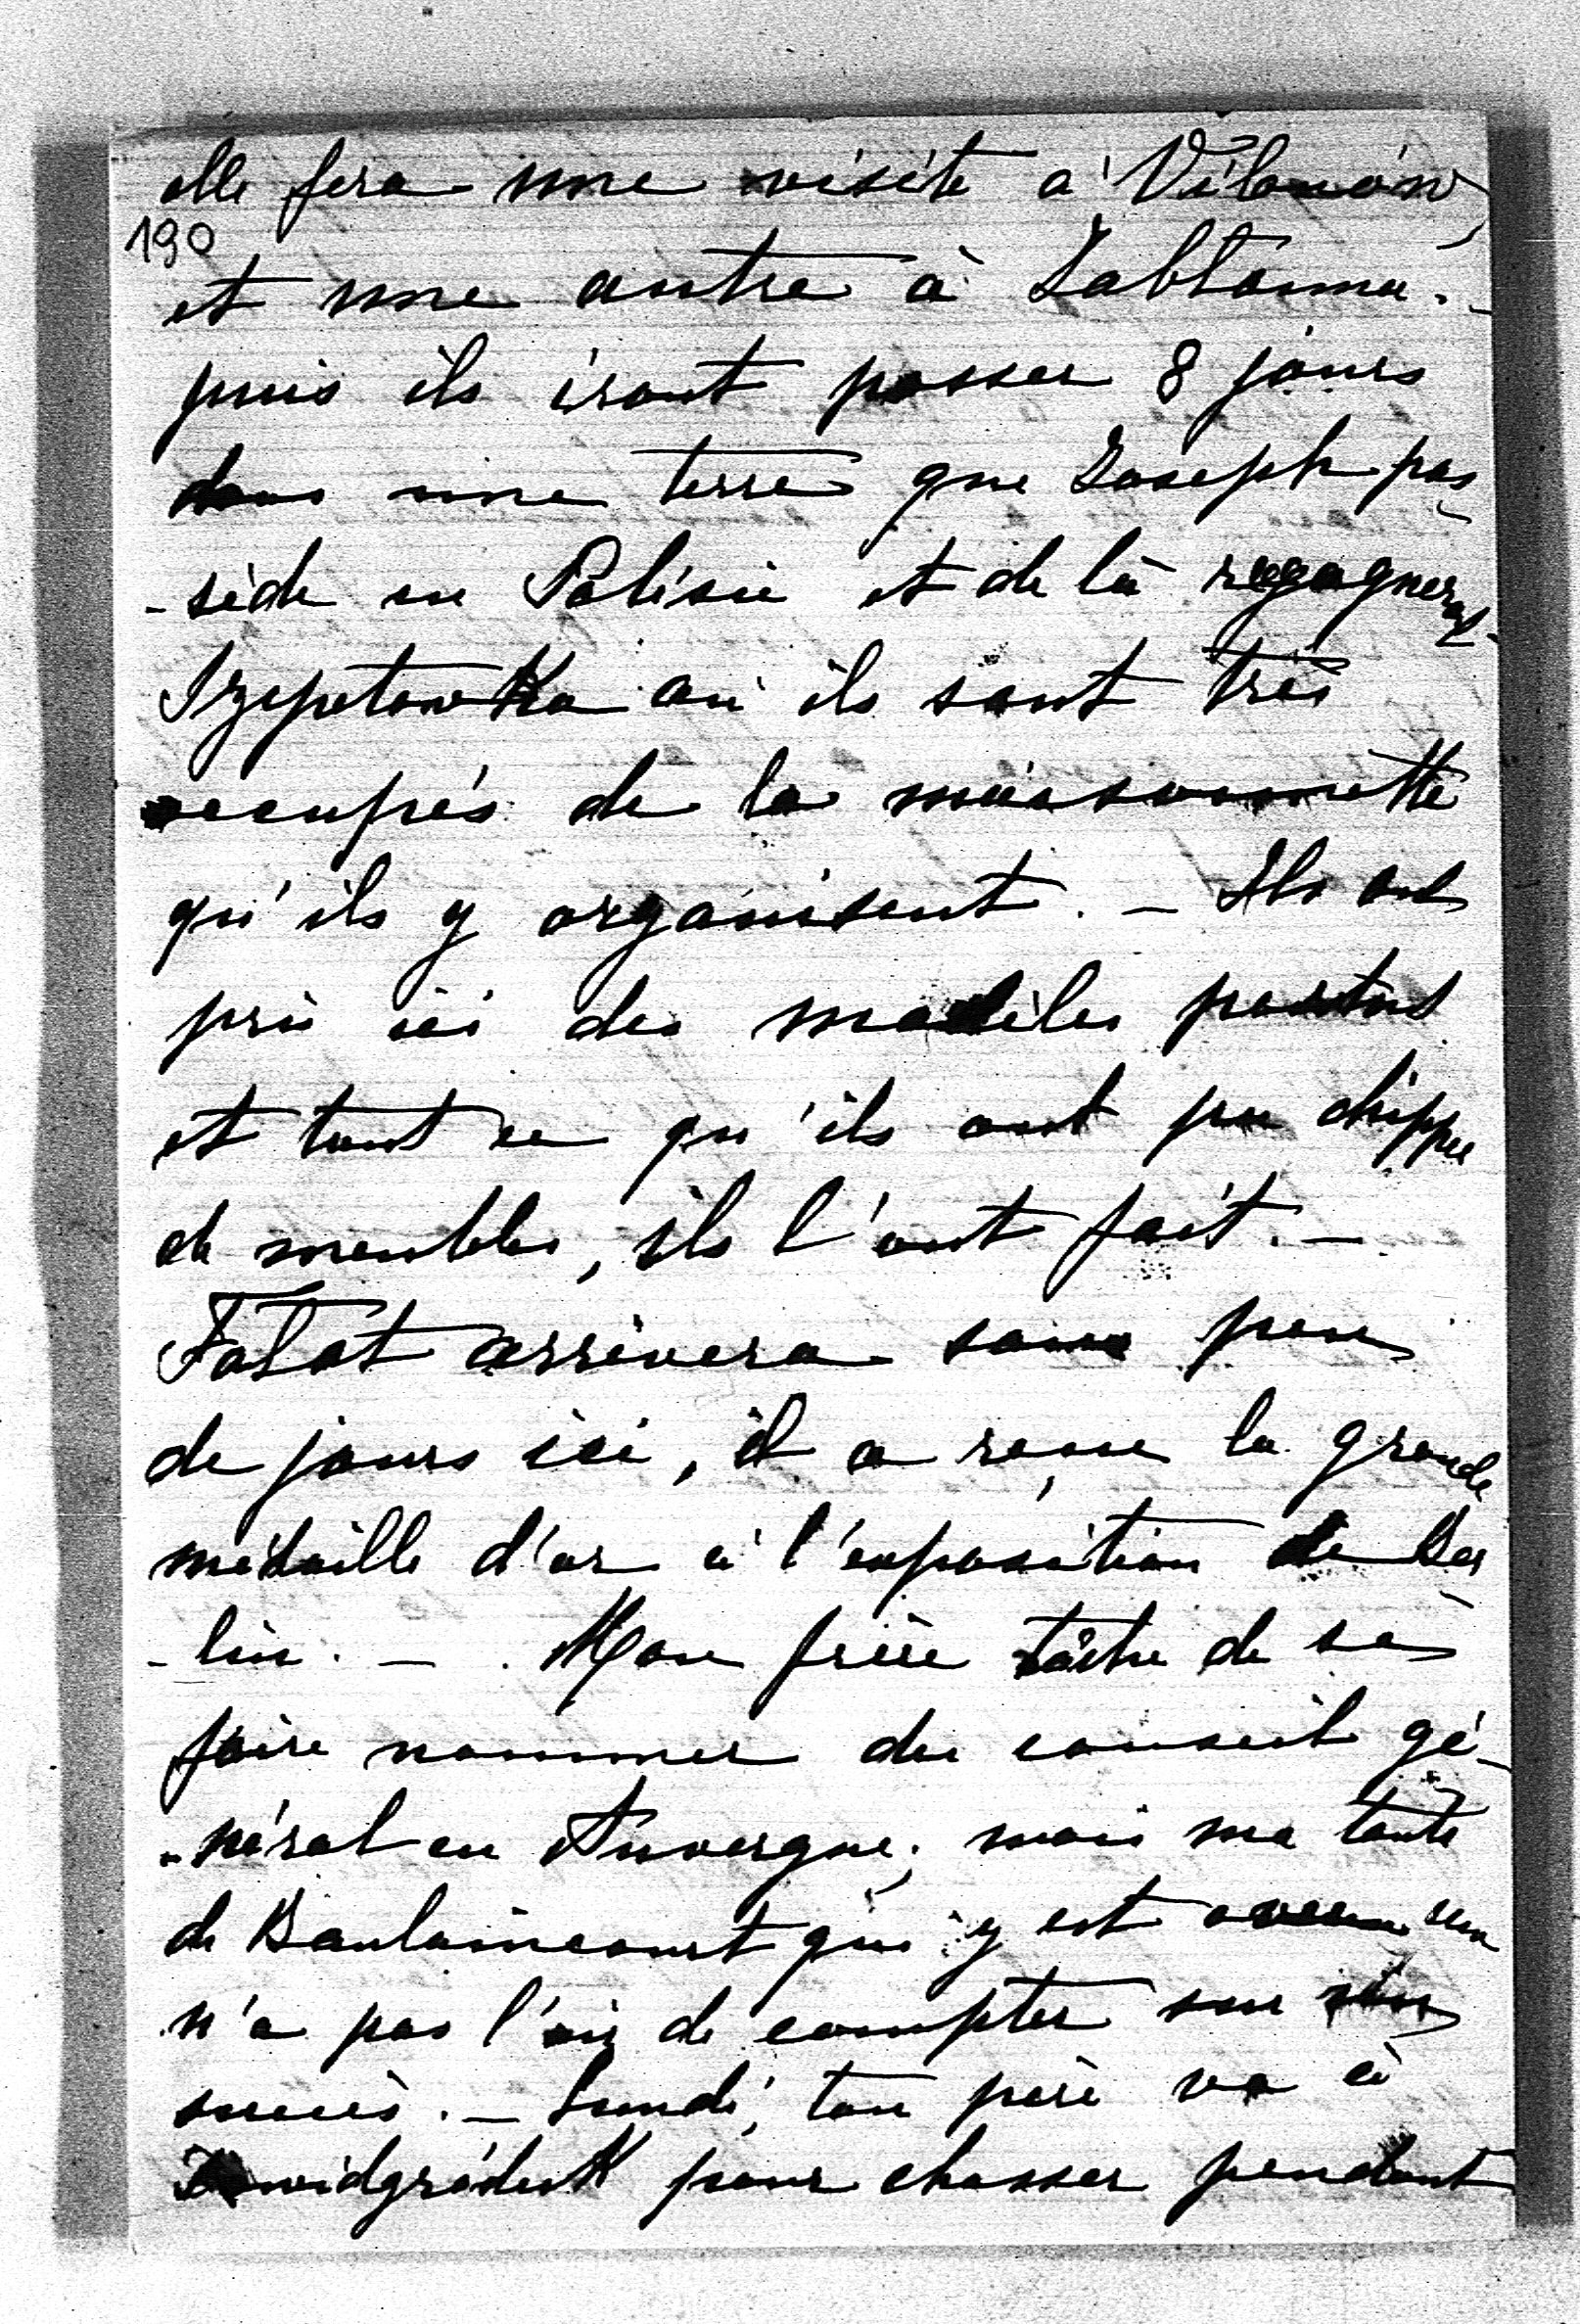 elle fera une visite à Vilanów,
190
et une autre à Jabłonna. -
puis ils iront passer 8 jours
dans une terre que Joseph pos
- sède en Polésie et de là regagneront
Szepetowka où ils sont très
occupés de la maisonnette
qu'ils y organisent. - Ils ont
pris ici des modèles partout
et tout ce qu'ils ont pu chipper
de meubles, ils l'ont fait. -
Fałat arrivera sous peu
de jours ici, il a reçu la grande
médaille d'or à l'exposition de Ber
- lin. - Mon frère tâche de se
faire nommer du conseil gé-
- néral en Auvergne; mais ma tante
de Baulaincourt qui y est
n'a pas l'air de compter sur son
succès. - Lundi, ton père va à
Dawidgródek pour chasser pendant